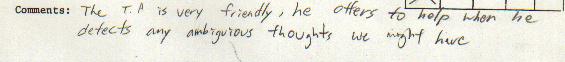 Comments: The T.A is very friendly, he offers to help when he
detects any ambiguious thoughts we might have